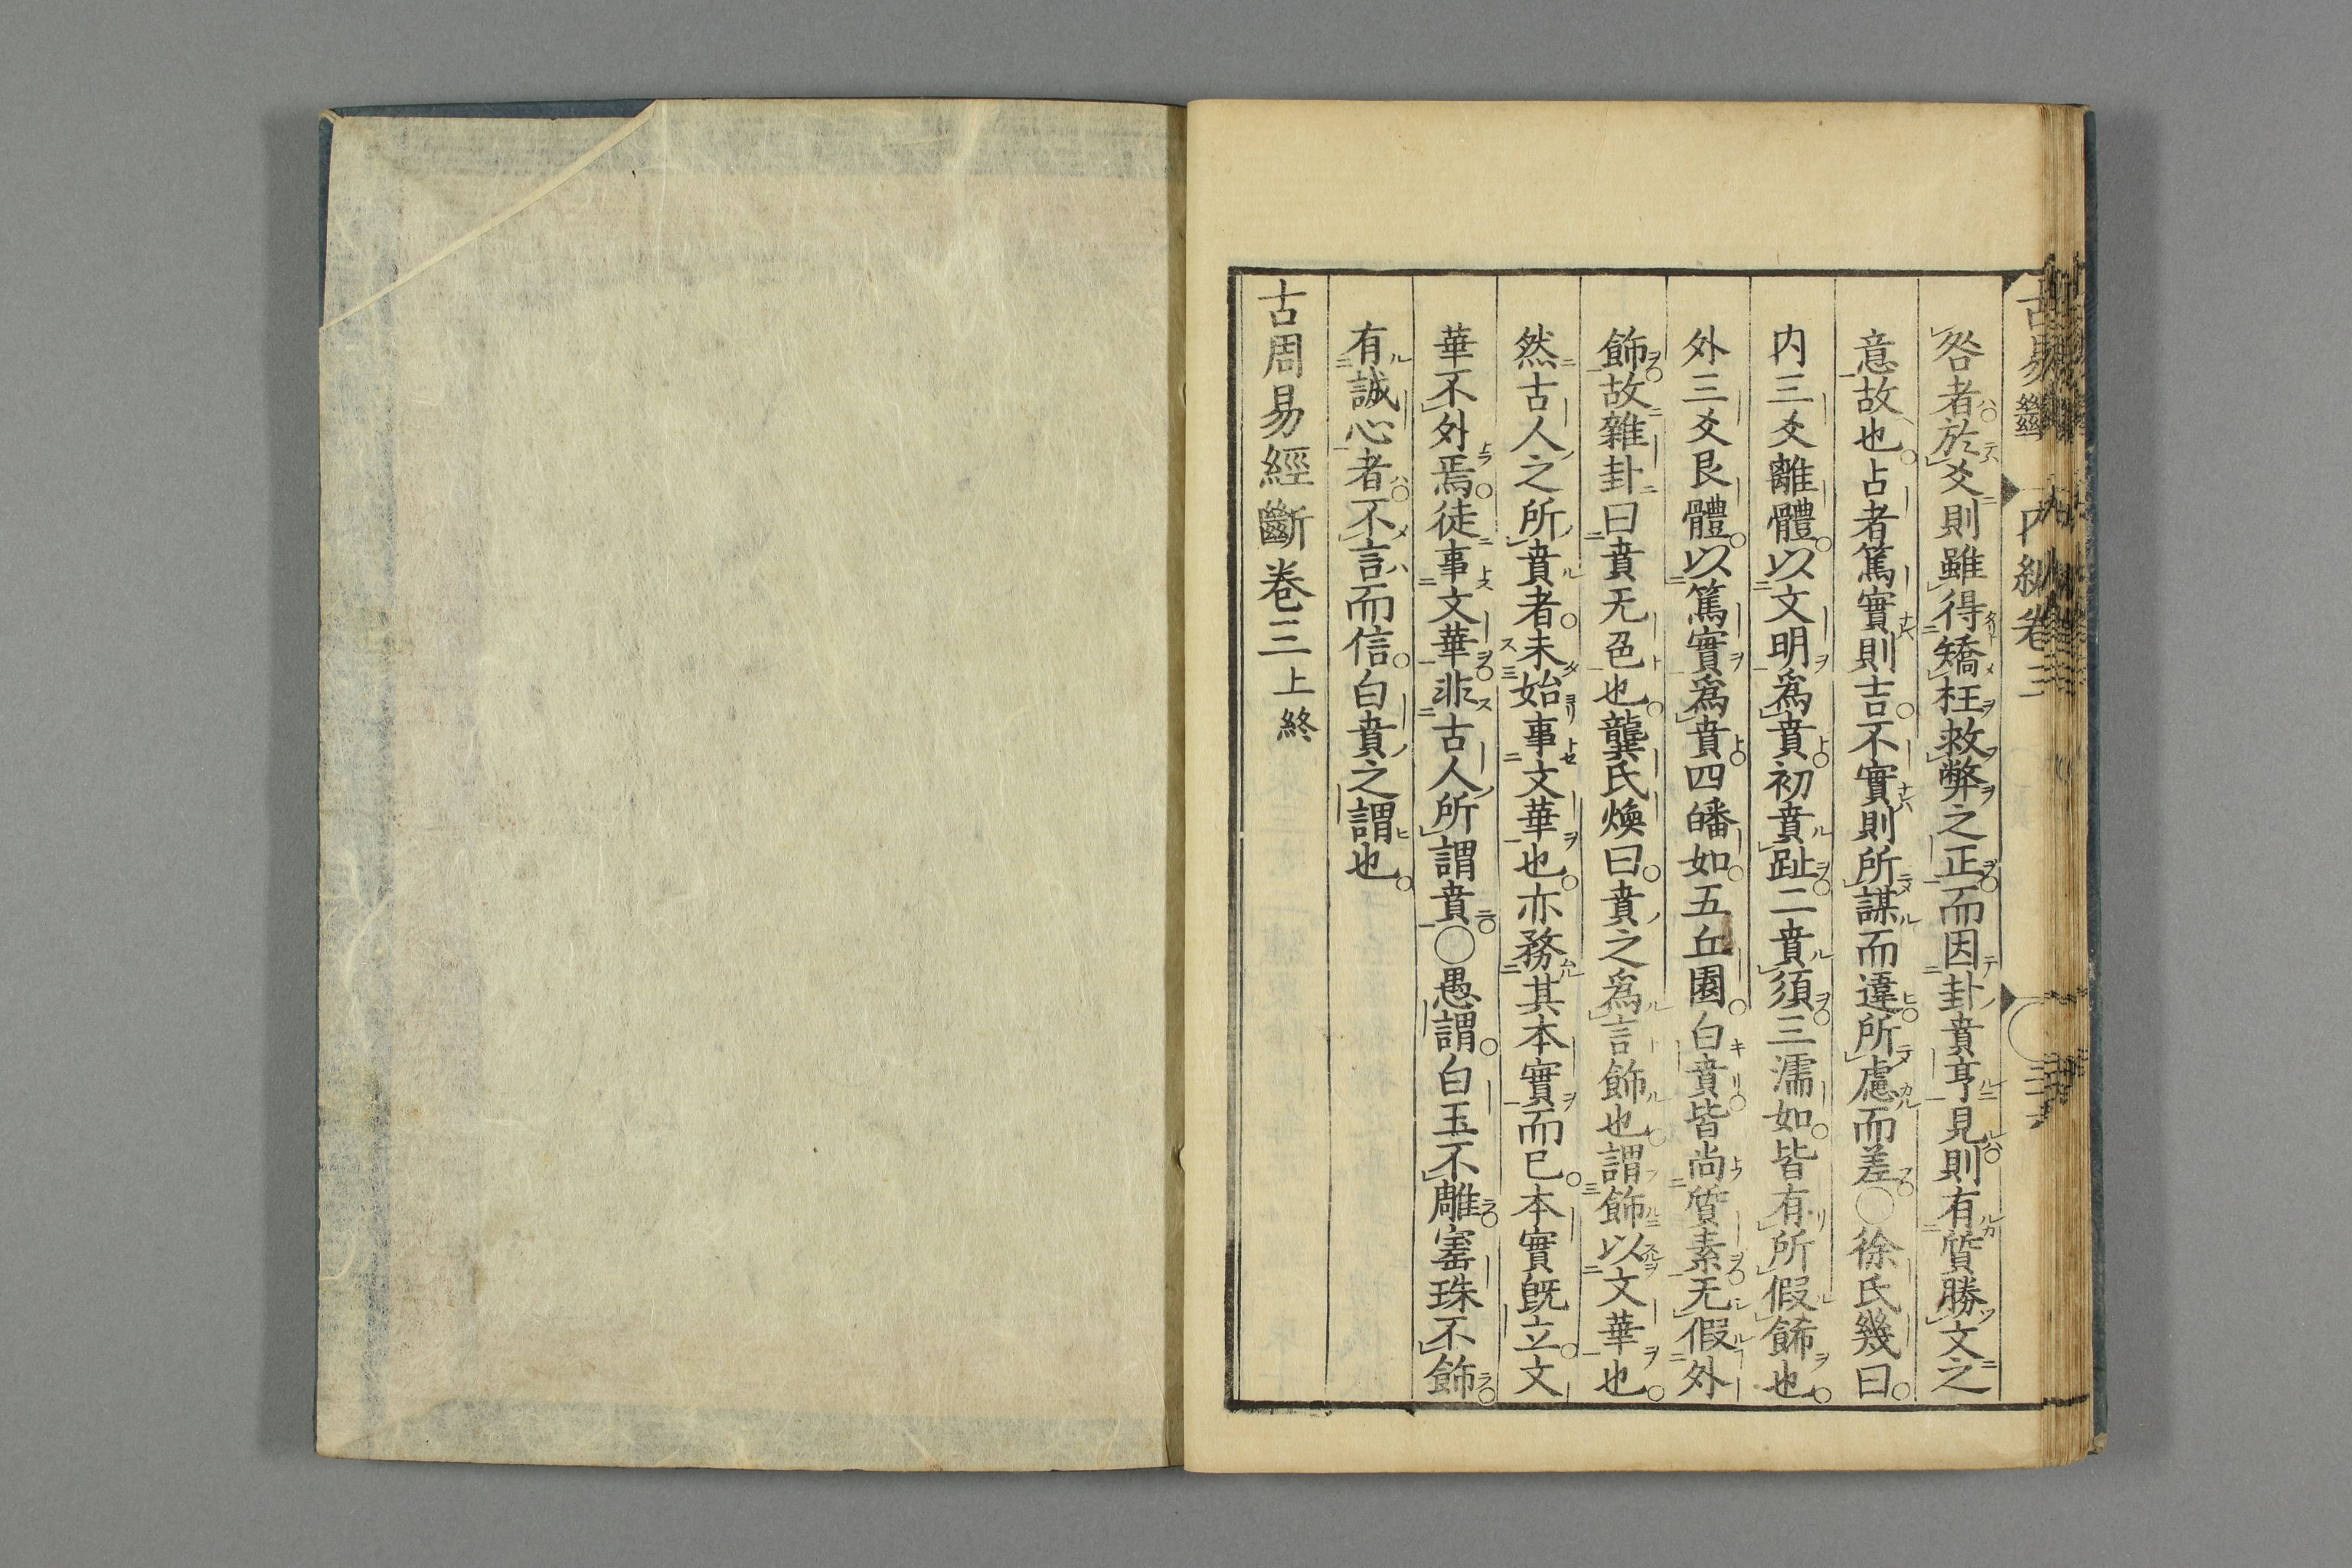 咎者於爻則雖得矯枉救弊之正而因卦賁亨見則有質勝文之
意故也占者篤實則吉不實則所謀而違所慮而差○徐氏幾曰
内三爻離體以文明爲賁初賁趾二賁須三濡如皆有所假飾也
外三爻艮體以篤實爲賁四皤如五丘園白賁皆尚質素无假外
飾故雜卦曰賁无色也龔氏煥曰賁之爲言飾也謂飾以文華也
然古人之所賁者未始事文華也亦務其本實而已本實既立文
華不外焉徒事文華非古人所謂賁○愚謂白玉不雕寚珠不飾
有誠心者不言而信白賁之謂也
古周易經斷卷三上終